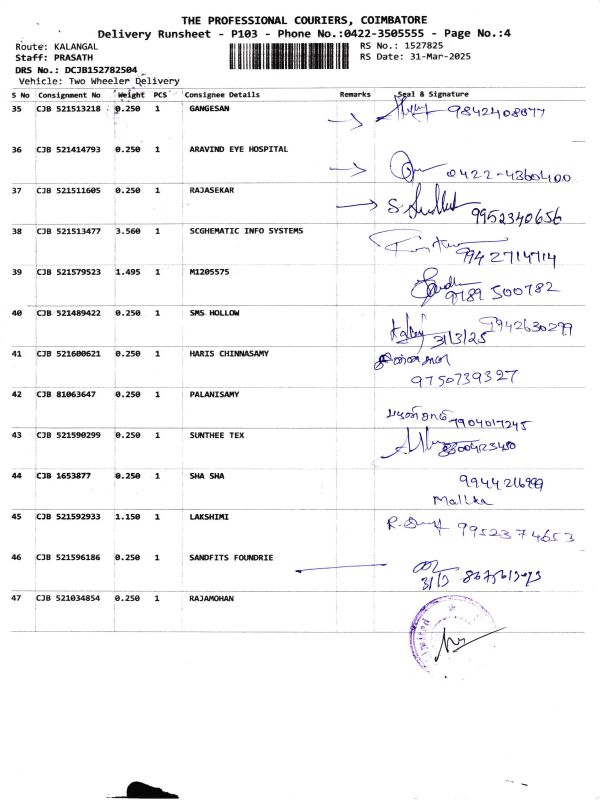 THE PROFESSIONAL COURIERS, COIMBATORE
Delivery Runsheet - P103 - Phone No.:0422-3505555 - Page No.:4
Route: KALANGAL RS No.: 1527825
Staff: PRASATH RS Date: 31-Mar-2025
DRS No.: DCJB152782504
Vehicle: Two Wheeler Delivery
S No Consignment No Weight PCS Consignee Details Remarks Seal & Signature
35 CJB 521513218 0.250 1 GANGESAN 9842408077
36 CJB 521414793 0.250 1 ARAVIND EYE HOSPITAL
0422-4360400
37 CJB 521511605 0.250 1 RAJASEKAR
9952340656
38 CJB 521513477 3.560 1 SCGHEMATIC INFO SYSTEMS
9942714714
39 CJB 521579523 1.495 1 M1205575
9789 500782
40 CJB 521489422 0.250 1 SMS HOLLOW
9942630299
31/3/25
41 CJB 521600621 0.250 1 HARIS CHINNASAMY
9750739327
42 CJB 81063647 0.250 1 PALANISAMY
7904017245
43 CJB 521590299 0.250 1 SUNTHEE TEX
44 CJB 1653877 0.250 1 SHA SHA
Mallika
45 CJB 521592933 1.150 1 LAKSHIMI
9952374653
46 CJB 521596186 0.250 1 SANDFITS FOUNDRIE
31/3
47 CJB 521034854 0.250 1 RAJAMOHAN